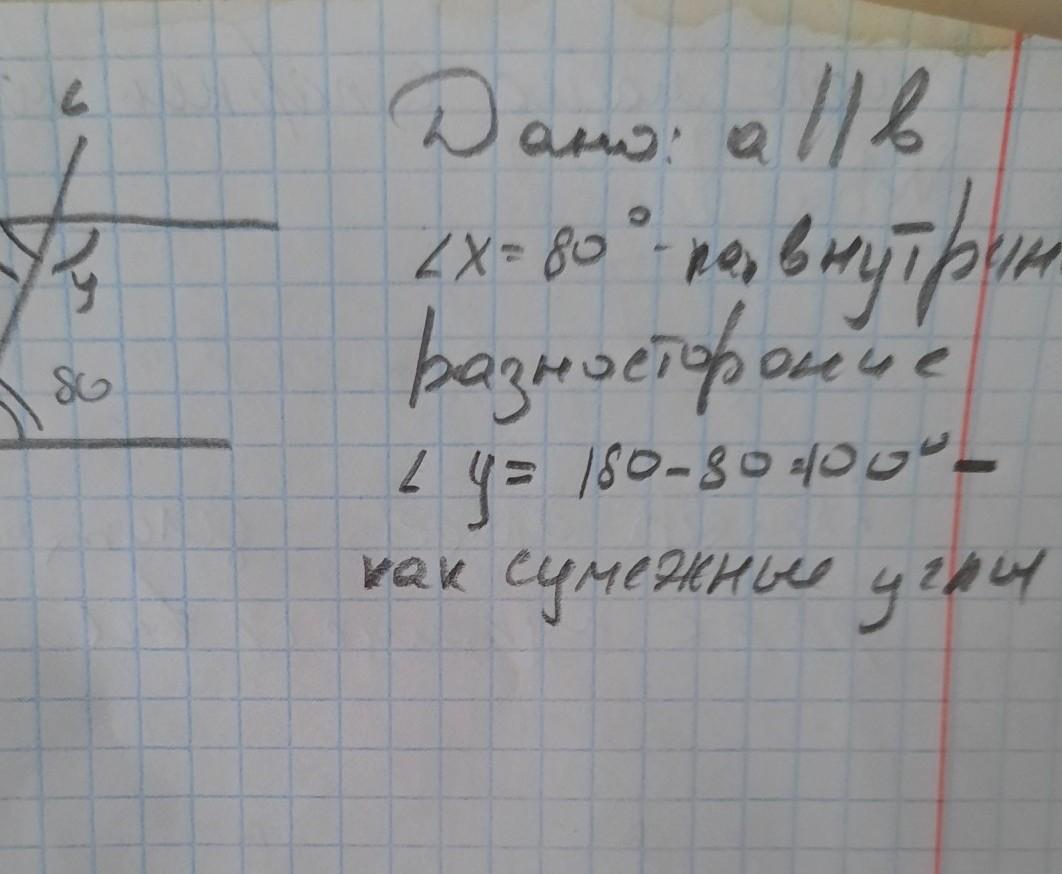 c
y
80
Дано: a || b
∠x = 80° - как внутрин
разностороние
∠ y = 180 - 80 = 100° -
как сумежные углы